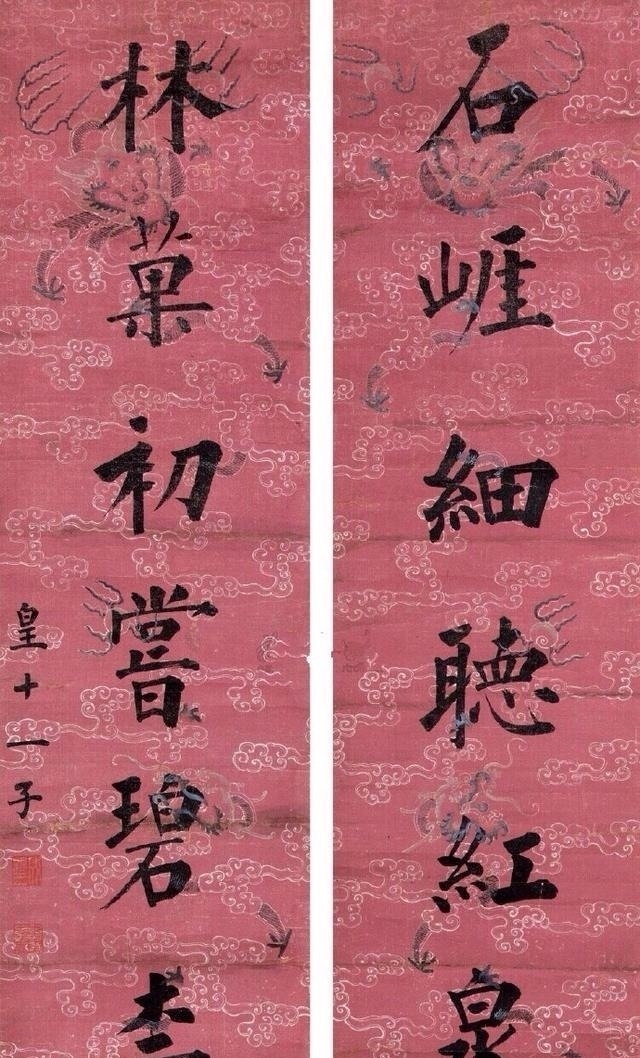 石崕細聴紅泉
林菓初嘗碧柰
皇十一子